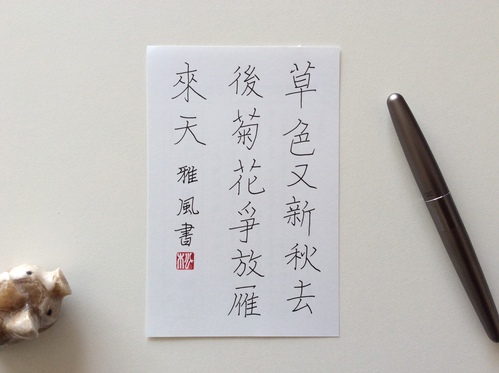 草色又新秋去
後菊花爭放雁
來天
雅風書